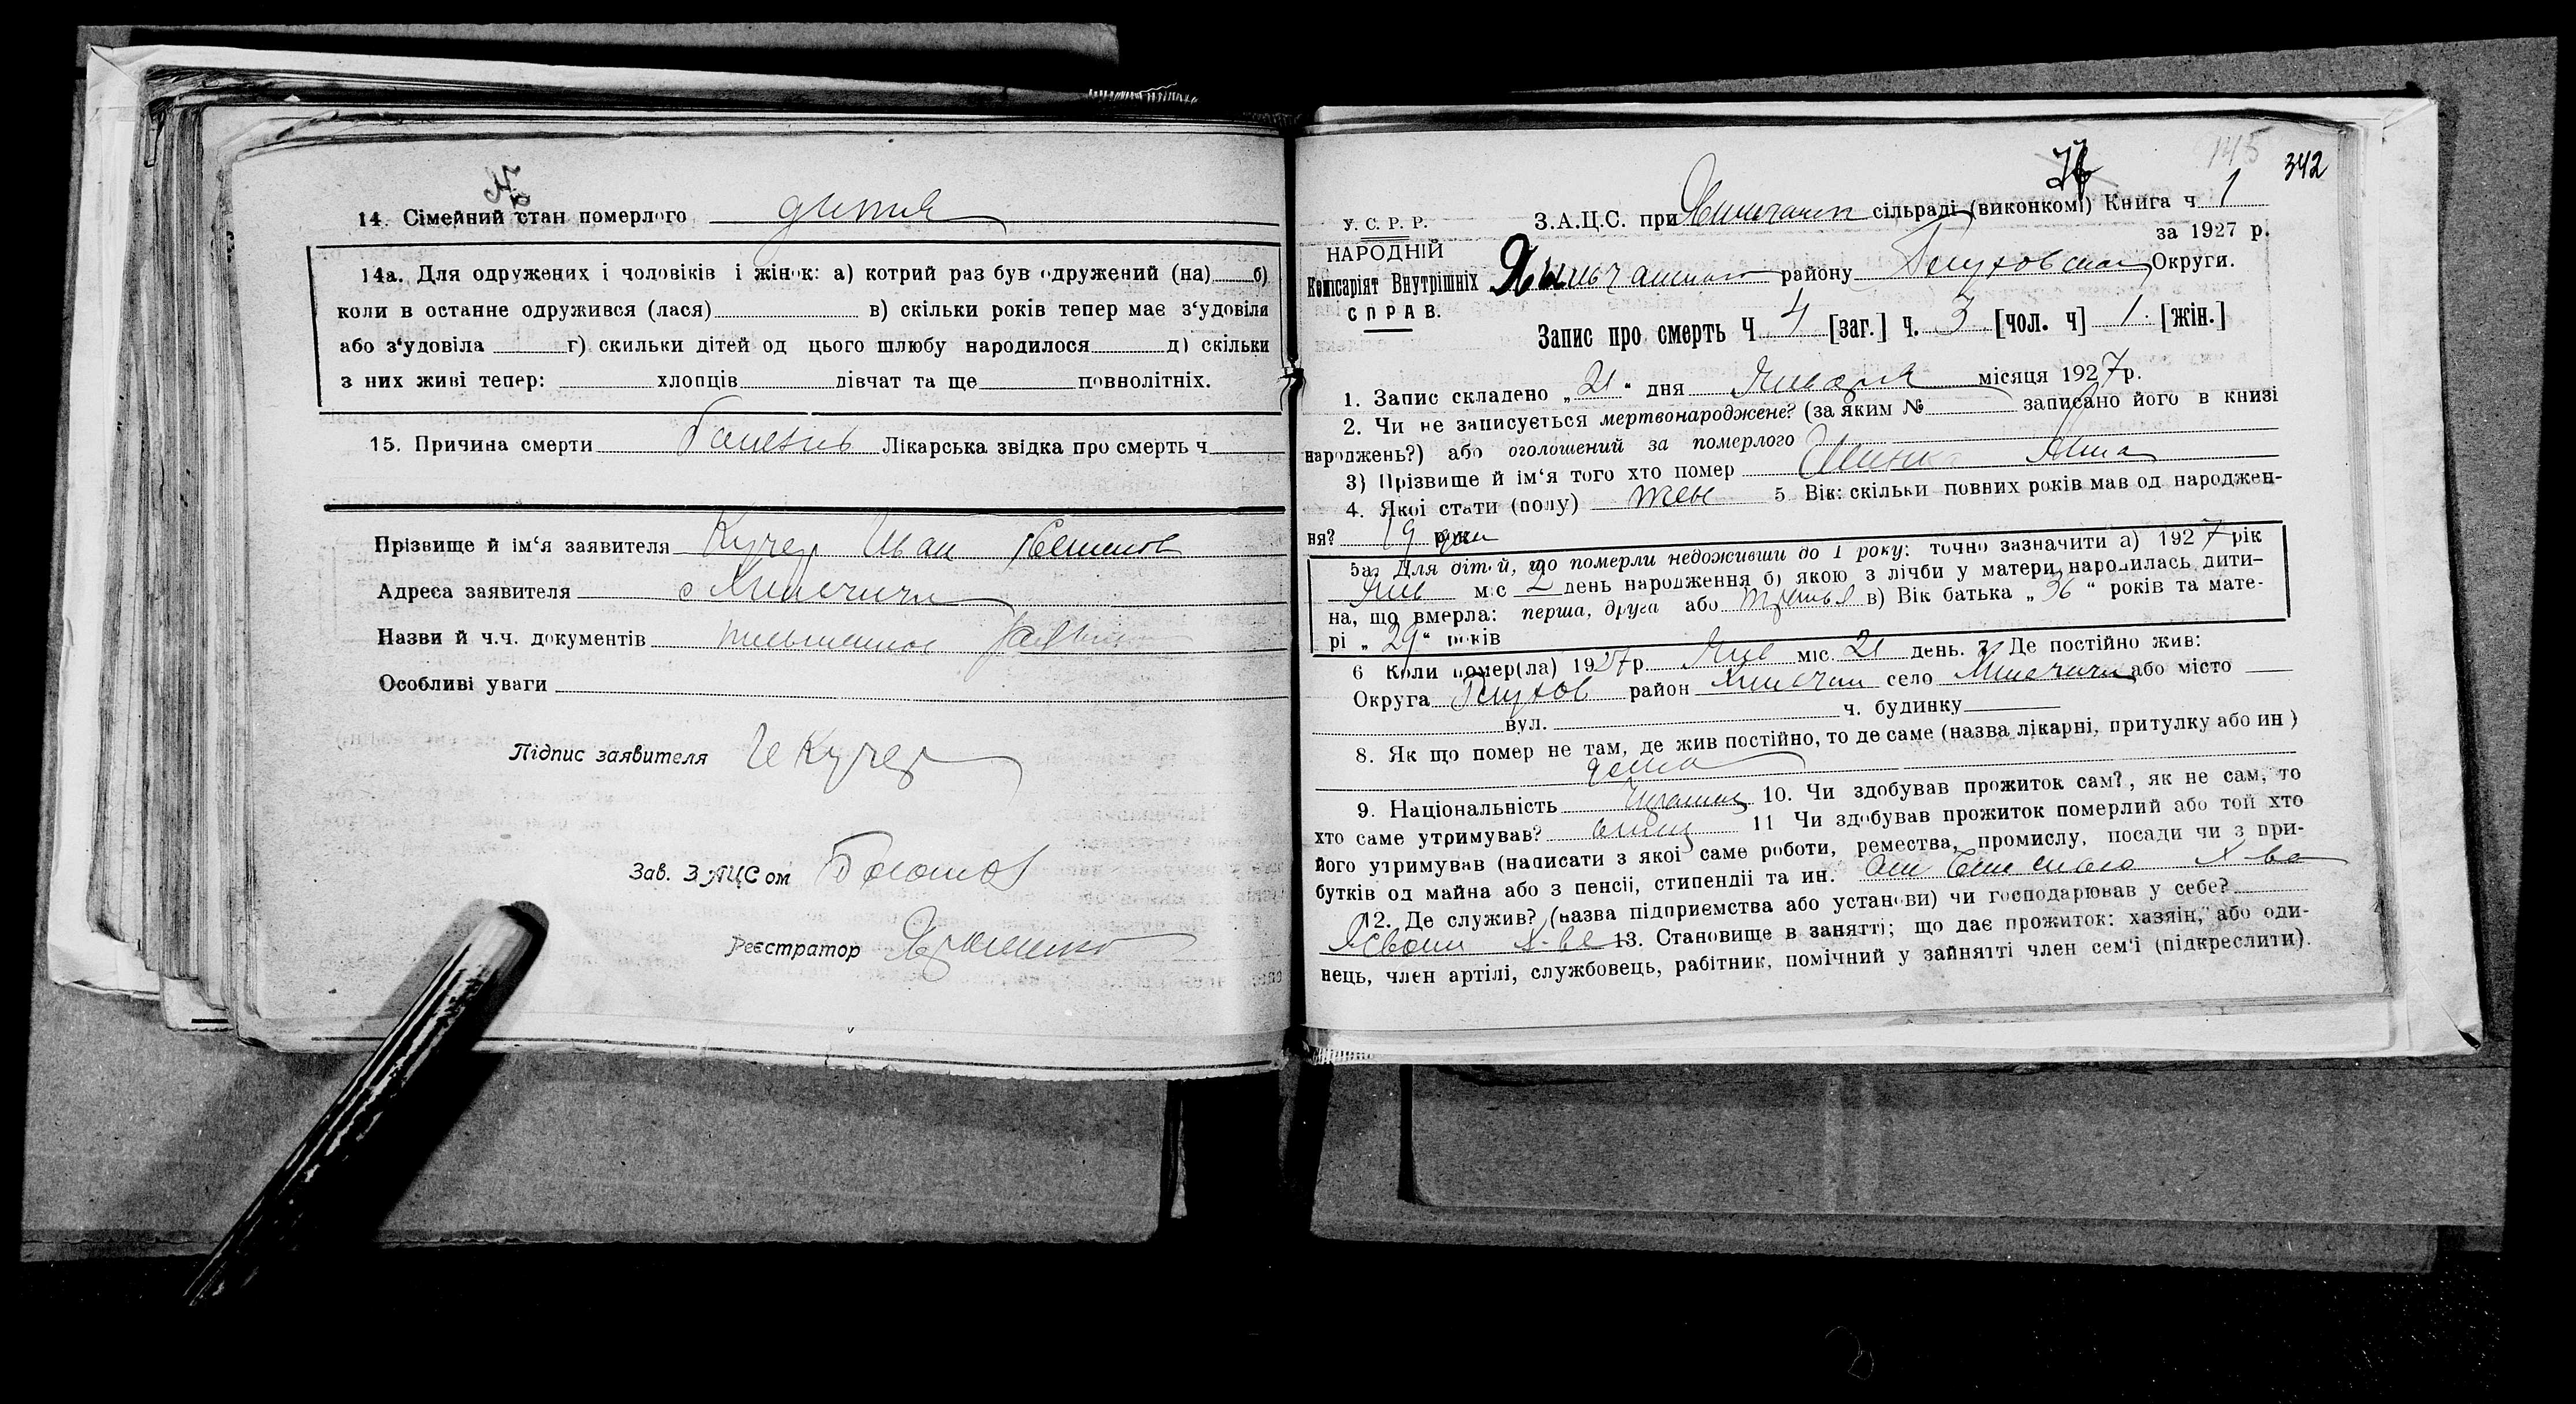 14. Сімейний стан померлого дитя
14а. Для одружених і чоловіків і жінок: а) котрий раз був одружений (на) б)
коли в останне одружився (лася) в) скільки років тепер має з‘удовіля
або з‘удовіла г) скильки дітей од цього шлюбу народилося д) скільки
з них живі тепер: хлопців дівчат та ще повнолітніх.
15. Причина смерти болезнь Лікарська звідка про смерть ч
Прізвище й ім‘я заявителя Кучер Иван
Адреса заявителя с
Назви й ч.ч. документів
Особливі уваги
Підпис заявителя И Кучер
Зав. ЗАЦСом
Реєстратор
145 342
У. С. Р. Р.
НАРОДНІЙ
Комісаріят Внутрішніх
СПРАВ.
З.А.Ц.С. при сільраді (виконкомі) Книга ч 1
за 1927 р.
району Глуховской Округи.
Запис про смерть Ч 4 [заг.] ч. 3 [чол. ч] 1. [жін.]
1. Запис складено „21“ дня Января місяця 1927 р.
2. Чи не записується мертвонароджене? (за яким № записано його в книзі
народжень?) або оголошений за померлого
3) Прізвище й ім‘я того хто помер Анна
4. Якої стати (полу) жен 5 Вік: скільки повних років мав од народжен-
ня? 19 дн
5а. Для дітей, що померли недоживши до 1 року: точно зазначити а) 1927 рік
Янв міс 2 день народження б) якою з лічби у матери народилась дити-
на, що вмерла: перша, друга або третья в) Вік батька „36“ років та мате-
рі „29“ років
6 Коли помер(ла) 1927 р. Янв міс. 21 день. 7. Де постійно жив:
Округа Глухов район село або місто
вул. ч. будинку
8. Як що помер не там, де жив постійно, то де саме (назва лікарні, притулку або ин)
дома
9. Національність 10. Чи здобував прожиток сам?, як не сам, то
хто саме утримував? отец 11 Чи здобував прожиток померлий або той хто
його утримував (написати з якої саме роботи, ремества, промислу, посади чи з при-
бутків од майна або з пенсії, стипендії та ин. от сельского х-ва
12. Де служив? (назва підприємства або установи) чи господарював у себе?
в своем х-ве 13. Становище в занятті; що дає прожиток: хазяїн, або оди-
нець, член артілі, службовець, рабітник, помічний у зайнятті член сем‘ї (підкреслити).